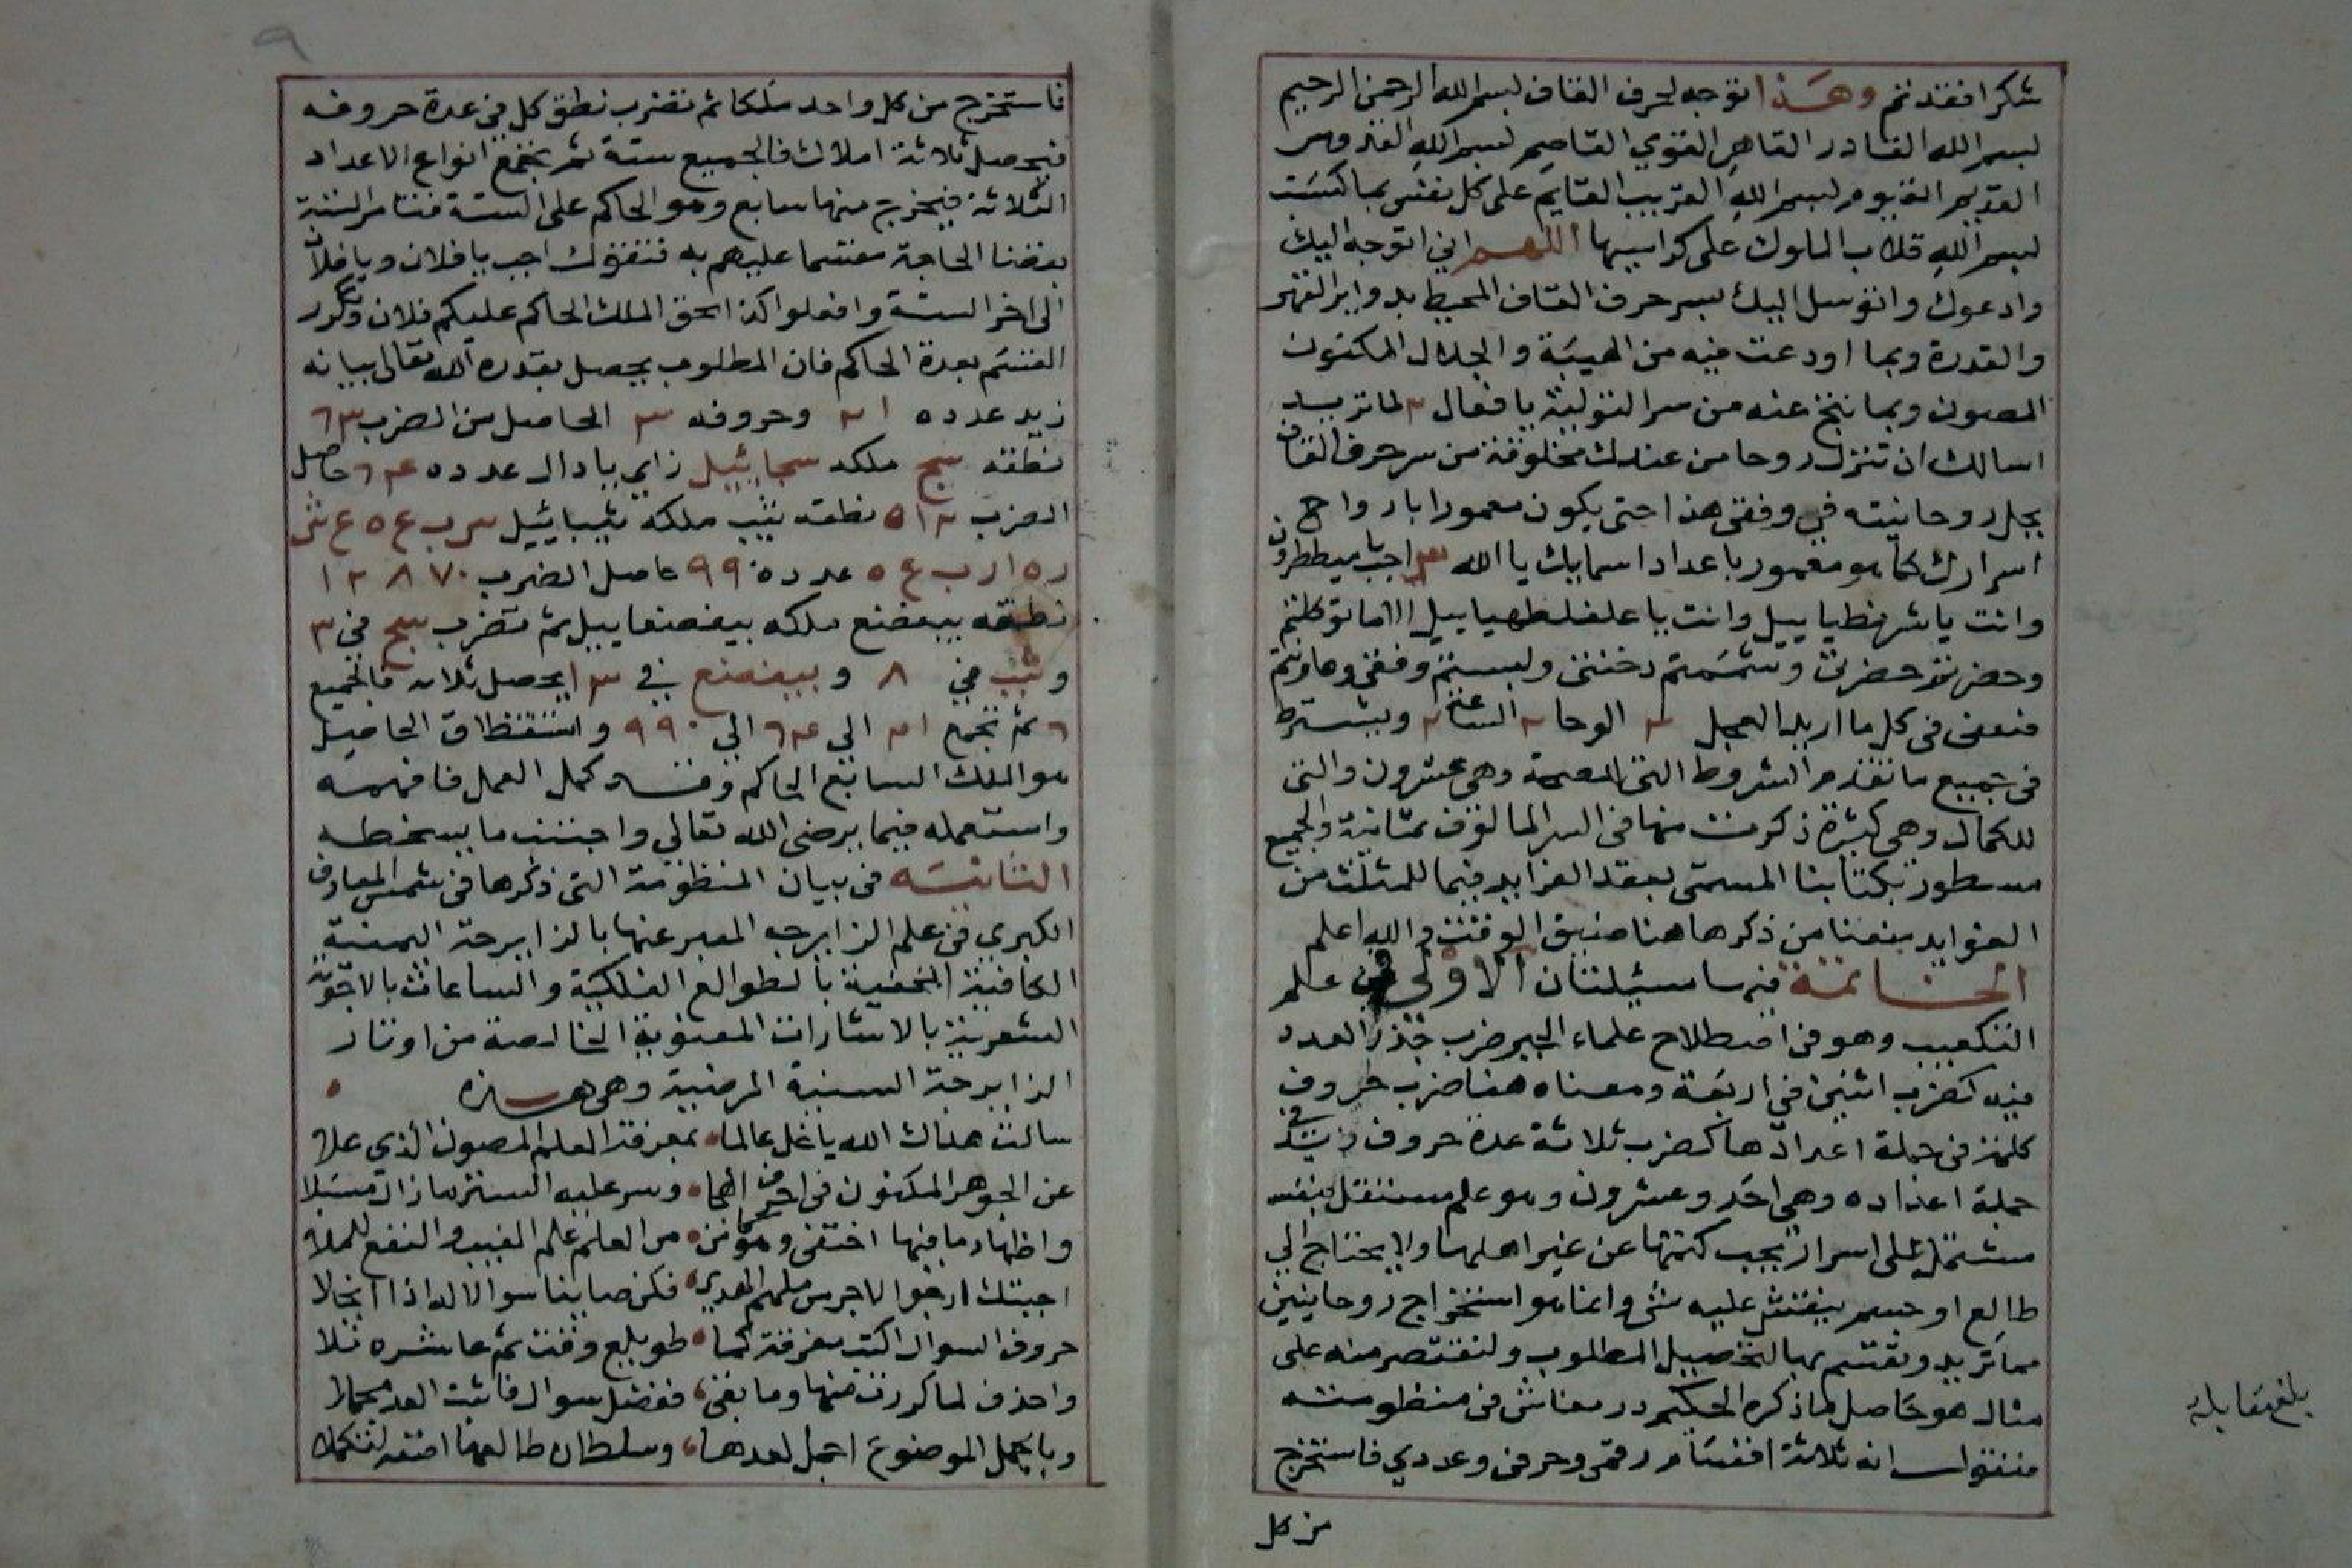 شكرا فقد تم وهذا توجه لحرف القاف بسم الله الرحمن الرحيم
بسم الله القادر القاهر القوي القاصم بسم الله القدوس
القديم القيوم بسم الله القريب القايم على كل نفس بما كسبت
بسم الله قلاب الملوك على كراسيها اللهم اني اتوجه اليك
وادعوك واتوسل اليك بسر حرف القاف المحيط بدواير القهر
والقدرة وبما اودعت فيه من الهيبة والجلال المكنون
المصون وبما نتج عنه من سر التولية يا فعال ٢ لما تريد
اسالك ان تنزل روحا من عندك مخلوقة من سر حرف القاف
بجل روحانيته في وفقي هذا حتى يكون معمورا بارواح
اسرارك كما هو مغمور باعداد اسمايك يا الله ٣ اجب يا ميططرون
وانت يا شرنطياييل وانت يا علفلطهياييل الا ما توكلتم
وحضرتم حضرتي وشممتم دخنتي ولبستم وفقي وعاونتم
معي في كل ما اريد العجل ٢ الوحا ٢ الساعة ٢ ويشترط
في جميع ما تقدم الشروط التي للصحة وهي عشرون والتي
للكمال وهي كثيرة ذكرت منها في السر المالوف ثمانية والجميع
مسطور بكتابنا المسمى بعقد الفرايد فيما للمثلث من
الفوايد منعنا من ذكرها هنا ضيق الوقت والله اعلم
الخاتمة فيها مسئلتان الاولى في علم
التكعيب وهو في اصطلاح علماء الجبر ضرب جذر العدد
فيه كضرب اثنين في اربعة ومعناه هنا ضرب حروف
كلمة في جملة اعدادها كضرب ثلاثة عدة حروف زيد في
جملة اعداده وهي احد وعشرون وهو علم مستقل بنفسه
مشتمل على اسرار يجب كتمها عن غير اهلها ولا يحتاج الى
طالع او جسم ينقش عليه شي وانما هو استخراج روحانيين
مما تريد وتقسم بها لتحصيل المطلوب ولنقتصر منه على
مثال هو حاصل لما ذكره الحكيم درمعاش في منظومته
فنقول انه ثلاثة اقسام رقمي وحرفي وعددي فاستخرج
من كل
بلغ مقابلة
٩
فاستخرج من كل واحد ملكا ثم تضرب نطق كل في عدة حروفه
فيحصل ثلاثة املاك فالجميع ستة ثم تجمع انواع الاعداد
الثلاثة فيخرج منها سابع وهو الحاكم على الستة فتامر الستة
بقضا الحاجة مقسما عليهم به فتقول اجب يا فلان ويا فلان
الى اخر الستة وافعلوا كذا بحق الملك الحاكم عليكم فلان وتكرر
القسم بعدة الحاكم فان المطلوب يحصل بقدرة الله تعالى بيانه
زيد عدده ٢١ وحروفه ٣ الحاصل من الضرب ٦٣
نطقه سج ملكه سجاييل زاي يا دال عدده ٦٤ حاصل
الضرب ٥١٢ نطقه يثب ملكه يثباييل س ب ع ه ع ش
ر ه ا ر ب ع ه عدده ٩٩٠ حاصل الضرب ١٢٨٧٠
نطقه ببعضنع ملكه بيغضعاييل ثم تضرب سج في ٣
وثب في ٨ و ببغضنع في ١٣ يحصل ثلاثة فالجميع
٦ ثم تجمع ٢١ الى ٦٤ الى ٩٩٠ واستنطاق الحاصل
هو الملك السابع الحاكم وقد كمل العمل فافهمه
واستعمله فيما يرضي الله تعالى واجتنب ما يسخطه
الثانية في بيان المنظومة التي ذكرها في شمس المعارف
الكبرى في علم الزايرجه المعبر عنها بالزايرجة اليمنية
الكافية المخفية بالطوالع الفلكية والساعات بالاجوبة
الشعرية بالاشارات المعنوية الخالصة من اوتار
الزايرجة السنية المرضية وهي هذه
سالت هداك الله يا خل عالما بمعرفة العلم المصون الذي علا
عن الجوهر المكنون في احرف الهجا وسر عليه الستر ما زال مسبلا
واظهار ما فيها اختفى من العلم علم الغيب والنفع للملا
اجبتك ارجو الاجر من ملهم الهدى فكن صاينا سوالا له اذا انجلا
حروف السوال اكتب معرفة لها طويلع وقت ثم عاشره تلا
واحذف لما كررت منها وما بقي ففضل سوال فاثبت العد مجملا
وبالجمل الموضوع اجمل لعدها وسلطان طالعها اضفه لتكملا